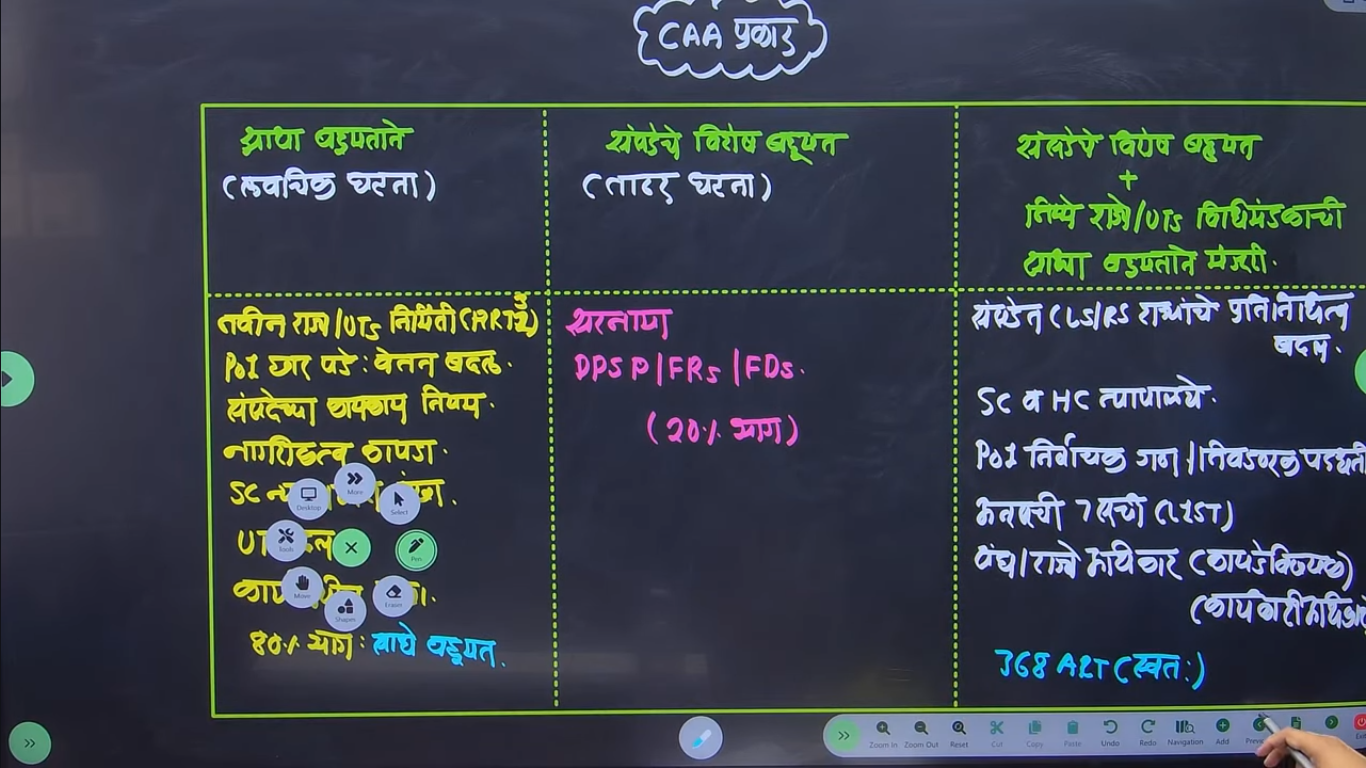 CAA प्रकार
साधा बहुमताने
(लवचिक घटना)
संसदेचे विशेष बहुमत
(ताठर घटना)
संसदेचे विशेष बहुमत
+
निम्मे राज्ये/UTs विधिमंडळाची
साध्या बहुमताने मंजुरी.
नवीन राज्य/UTs निर्मिती (ART 3)
PoI चार पदे : वेतन बदल.
संसदेच्या कामकाज नियम.
नागरिकत्व कायदा.
SC
80% भाग : साधे बहुमत.
सरनामा
DPSP/FRs/FDs.
(20% भाग)
संसदेत (LS/RS राज्यांचे प्रतिनिधित्व
बदल.
SC व HC न्यायालये.
PoI निर्वाचक गण/निवडणूक पद्धती
अनुसूची 7 सूची (LIST)
संघ/राज्ये अधिकार (कायदेविषयक)
(कार्यकारी अधिकार
368 ART (स्वतः)
More
Desktop
Select
Tools
Pen
Move
Eraser
Shapes
Zoom In
Zoom Out
Reset
Cut
Copy
Paste
Undo
Redo
Navigation
Add